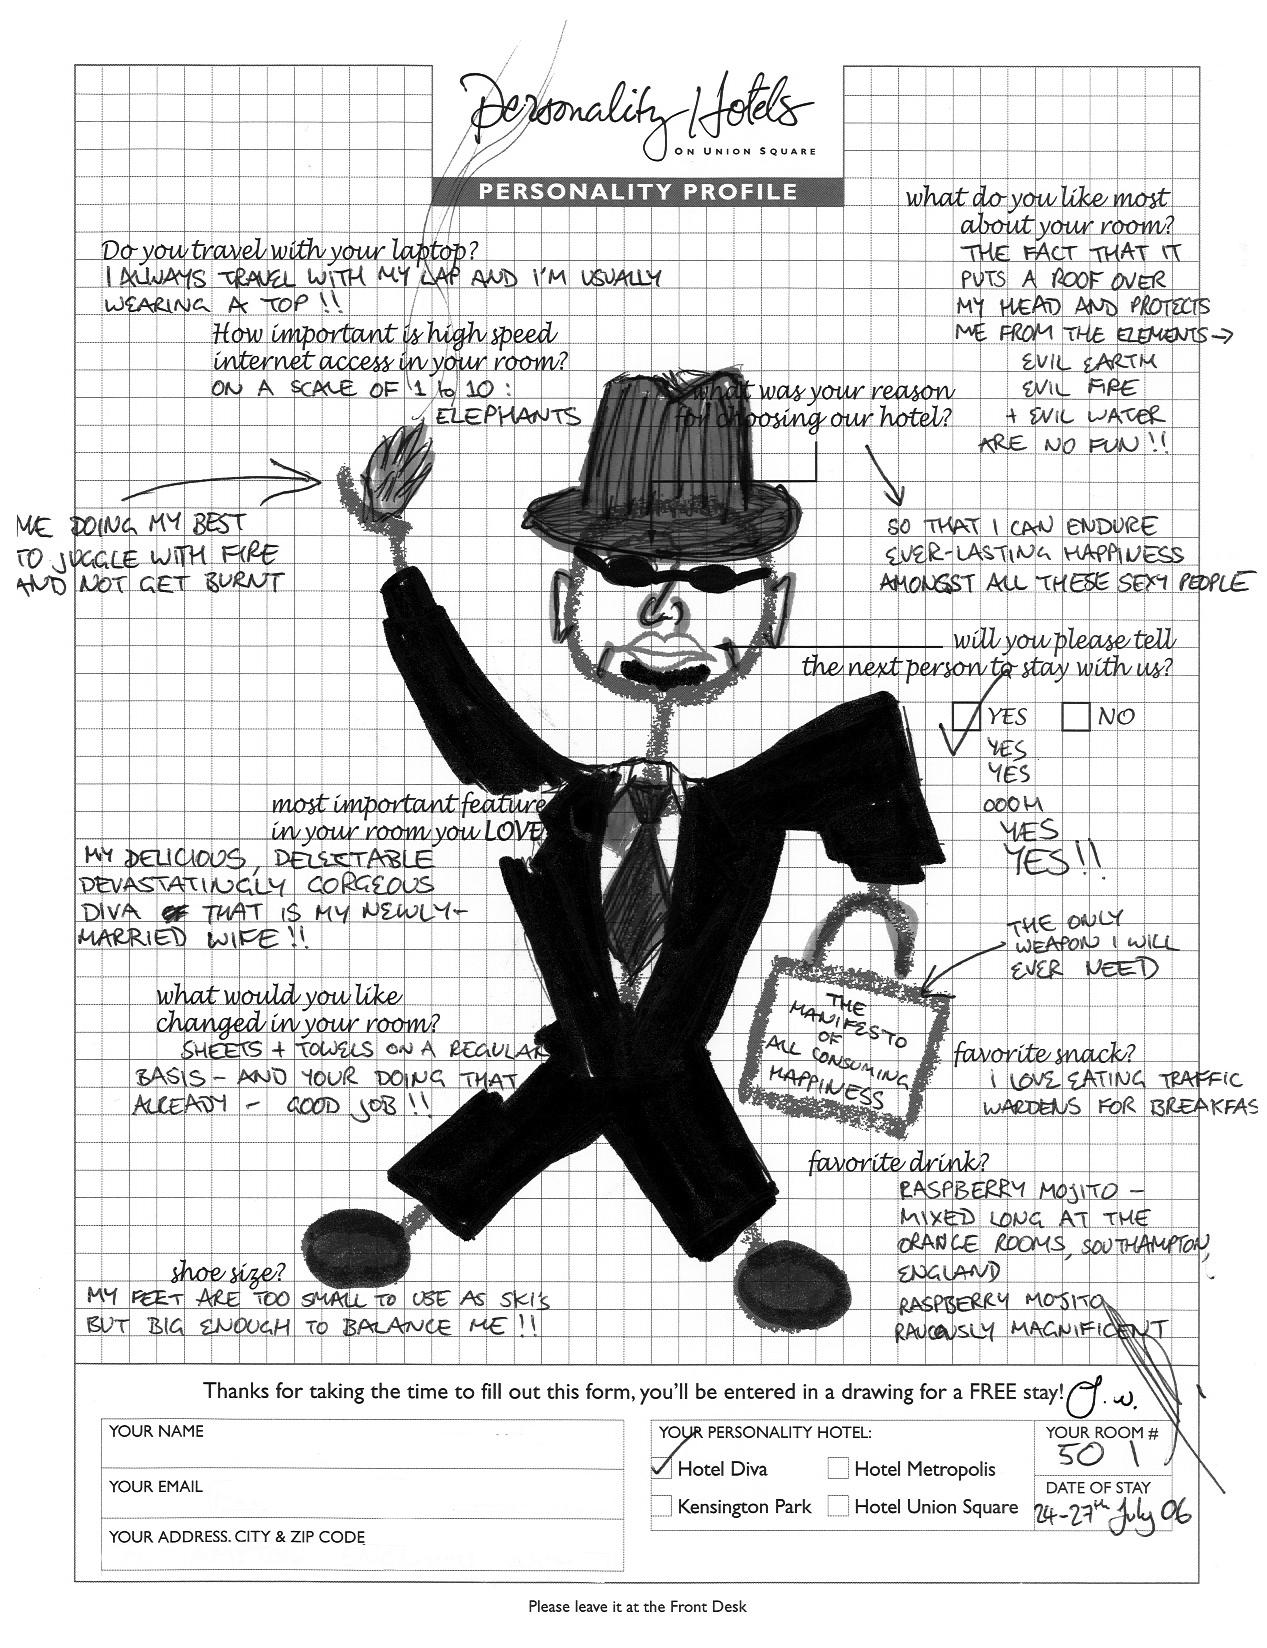 Personality Hotels
ON UNION SQUARE
PERSONALITY PROFILE
Do you travel with your laptop?
I ALWAYS TRAVEL WITH MY LAP AND I'M USUALLY
WEARING A TOP!!
How important is high speed
internet access in your room?
ON A SCALE OF 1 to 10:
ELEPHANTS
what do you like most
about your room?
THE FACT THAT IT
PUTS A ROOF OVER
MY HEAD AND PROTECTS
ME FROM THE ELEMENTS→
EVIL EARTH
EVIL FIRE
+ EVIL WATER
ARE NO FUN!!
what was your reason
for choosing our hotel?
SO THAT I CAN ENDURE
EVER-LASTING HAPPINESS
AMONGST ALL THESE SEXY PEOPLE
ME DOING MY BEST
TO JUGGLE WITH FIRE
AND NOT GET BURNT
will you please tell
the next person to stay with us?
YES NO
YES
YES
OOOH
YES
YES!!
most important feature
in your room you LOVE
MY DELICIOUS, DELECTABLE
DEVASTATINGLY GORGEOUS
DIVA THAT IS MY NEWLY-
MARRIED WIFE!!
THE ONLY
WEAPON I WILL
EVER NEED
THE
MANIFESTO
OF
ALL CONSUMING
HAPPINESS
what would you like
changed in your room?
SHEETS + TOWELS ON A REGULAR
BASIS - AND YOUR DOING THAT
ALREADY - GOOD JOB!!
favorite snack?
I LOVE EATING TRAFFIC
WARDENS FOR BREAKFAS
favorite drink?
RASPBERRY MOJITO -
MIXED LONG AT THE
ORANGE ROOMS, SOUTHAMPTON,
ENGLAND
RASPBERRY MOJITO
RAUCOUSLY MAGNIFICENT
shoe size?
MY FEET ARE TOO SMALL TO USE AS SKI'S
BUT BIG ENOUGH TO BALANCE ME!!
Thanks for taking the time to fill out this form, you'll be entered in a drawing for a FREE stay!
YOUR NAME
YOUR EMAIL
YOUR ADDRESS. CITY & ZIP CODE
YOUR PERSONALITY HOTEL:
Hotel Diva
Hotel Metropolis
Kensington Park
Hotel Union Square
YOUR ROOM #
501
DATE OF STAY
24-27th July 06
Please leave it at the Front Desk